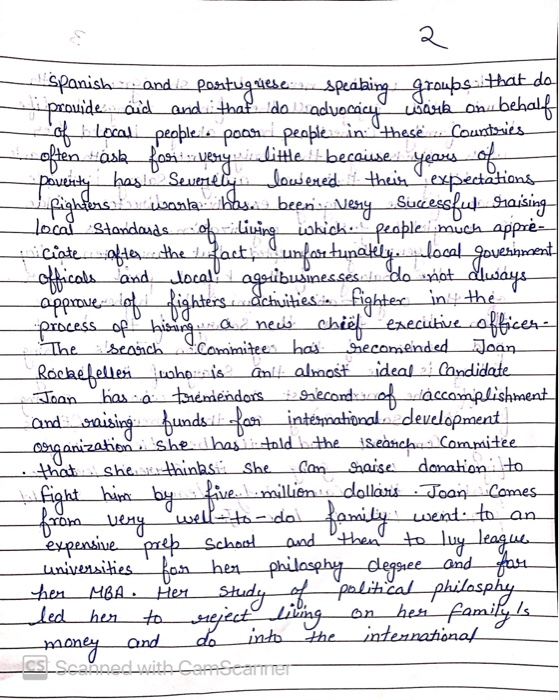 2
Spanish and portuguese speaking groups that do
provide aid and that do advocacy work on behalf
of local people. poor people in these Countries
often ask for very little because years of
poverty has Severely lowered their expectations
fighters work has been very Successful raising
local Standards of living which people much appre-
ciate after the fact, unfortunately. local government
officals and local agribusinesses do not always
approve of fighters activities. Fighter in the
process of hiring a new chief executive officer-
The search Commitee has recomended Joan
Rockefeller who is an almost ideal Candidate
Joan has a tremendors record of accomplishment
and raising funds for international development
organization. She has told the search Commitee
that she thinks she can raise donation to
fight him by five million dollars. Joan Comes
from very well-to-do family went to an
expensive prep School and then to Ivy league
universities for her philosphy degree and for
her MBA. Her Study of political philosphy
led her to reject living on her family's
money and do into the international
CS Scanned with CamScanner